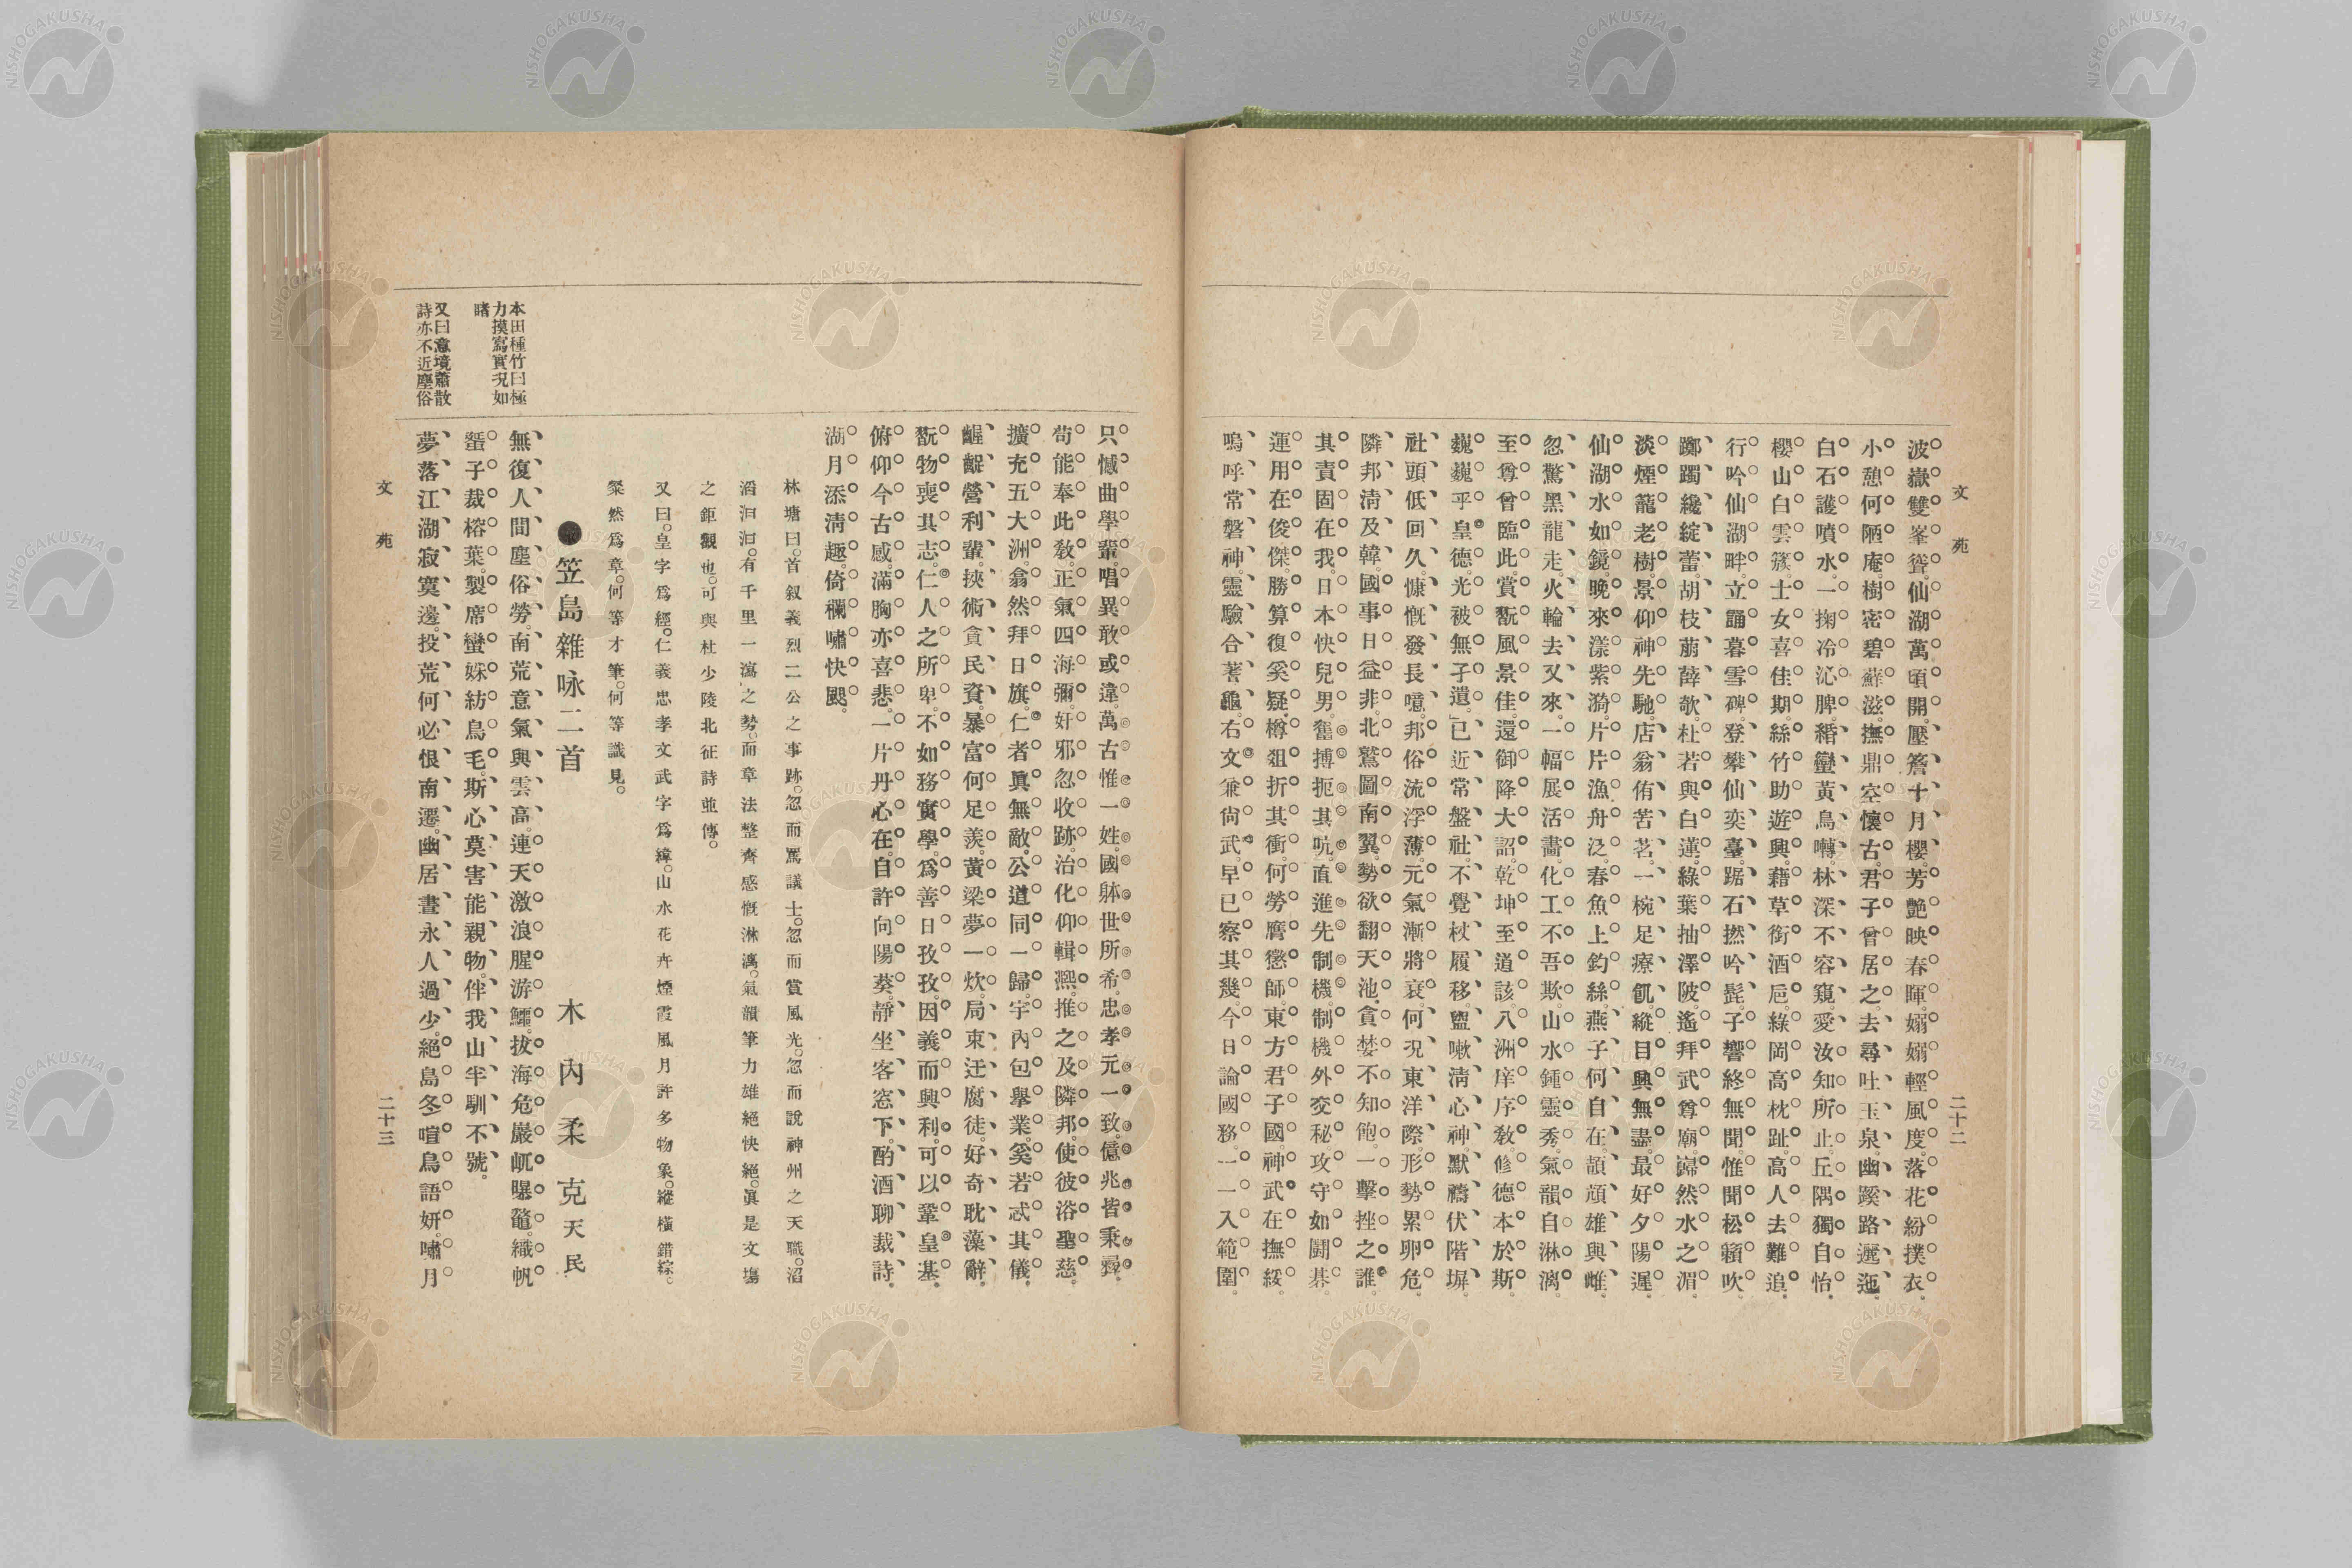 文苑
二十二
波嶽雙峯聳。仙湖萬頃開。壓簷十月櫻。芳艶映春暉。嫋嫋輕風度。落花紛撲衣。
小憩何陋庵。樹密碧蘚滋。撫鼎空懷古。君子曾居之。去尋吐玉泉。幽蹊路邐迤。
白石護噴水。一掬冷沁脾。緡蠻黃鳥囀。林深不容窺。愛汝知所止。丘隅獨自怡。
櫻山白雲簇。士女喜佳期。絲竹助遊興。藉草銜酒巵。綠岡高枕趾。高人去難追。
行吟仙湖畔。立誦暮雪碑。登攀仙奕臺。踞石撚吟髭。子響終無聞。惟聞松籟吹。
躑躅纔綻蕾。胡枝萠薛欹。杜若與白蓮。綠葉抽澤陂。遙拜武尊廟。巋然水之湄。
淡煙籠老樹。景仰神先馳。店翁侑苦茗。一椀足療飢。縱目興無盡。最好夕陽遲。
仙湖水如鏡。晚來漾紫漪。片片漁舟泛。春魚上釣絲。燕子何自在。頡頏雄與雌。
忽驚黑龍走。火輪去又來。一幅展活畵。化工不吾欺。山水鍾靈秀。氣韻自淋漓。
至尊曾臨此。賞翫風景佳。還御降大詔。乾坤至道該。八洲庠序敎。修德本於斯。
巍巍乎皇德。光被無孑遺。已近常盤社。不覺杖履移。盥嗽淸心神。默禱伏階墀。
社頭低回久。慷慨發長噫。邦俗流浮薄。元氣漸將衰。何況東洋際。形勢累卵危。
隣邦淸及韓。國事日益非。北鷲圖南翼。勢欲翻天池。貪婪不知飽。一擊挫之誰。
其責固在我。日本快兒男。奮搏扼其吭。直進先制機。制機外交秘。攻守如鬪棊。
運用在俊傑。勝算復奚疑。樽俎折其衝。何勞膺懲師。東方君子國。神武在撫綏。
嗚呼常磐神。靈驗合蓍龜。右文兼尙武。早已察其幾。今日論國務。一一入範圍。
只憾曲學輩。唱異敢或違。萬古惟一姓。國躰世所希。忠孝元一致。億兆皆秉彛。
苟能奉此敎。正氣四海彌。奸邪忽收跡。治化仰輯熙。推之及隣邦。使彼浴聖慈。
擴充五大洲。翕然拜日旗。仁者眞無敵。公道同一歸。宇內包擧業。奚若忒其儀。
齷齪營利輩。挾術貪民資。暴富何足羨。黃梁夢一炊。局束迂腐徒。好奇耽藻辭。
翫物喪其志。仁人之所卑。不如務實學。爲善日孜孜。因義而興利。可以鞏皇基。
俯仰今古感。滿胸亦喜悲。一片丹心在。自許向陽葵。靜坐客窓下。酌酒聊裁詩。
湖月添淸趣。倚欄嘯快颸。
林塘曰。首叙義烈二公之事跡。忽而罵議士。忽而賞風光。忽而說神州之天職。滔
滔汩汩。有千里一瀉之勢。而章法整齊感慨淋漓。氣韻筆力雄絕快絕。眞是文塲
之鉅觀也。可與杜少陵北征詩並傳。
又曰。皇字爲經。仁義忠孝文武字爲緯。山水花卉煙霞風月許多物象。縱橫錯綜。
粲然爲章。何等才筆。何等識見。
●笠島雜咏二首　木內柔克天民
本田種竹曰極
力摸寫實况如
睹
無復人間塵俗勞。南荒意氣興雲高。連天激浪腥游鱷。拔海危巖屼曝鼇。織帆
蜑子裁榕葉。製席蠻姝紡鳥毛。斯心莫害能親物。伴我山羊馴不號。
又曰意境蕭散
詩亦不近塵俗
夢落江湖寂寞邊。投荒何必恨南遷。幽居晝永人過少。絕島冬喧鳥語妍。嘯月
文苑
二十三